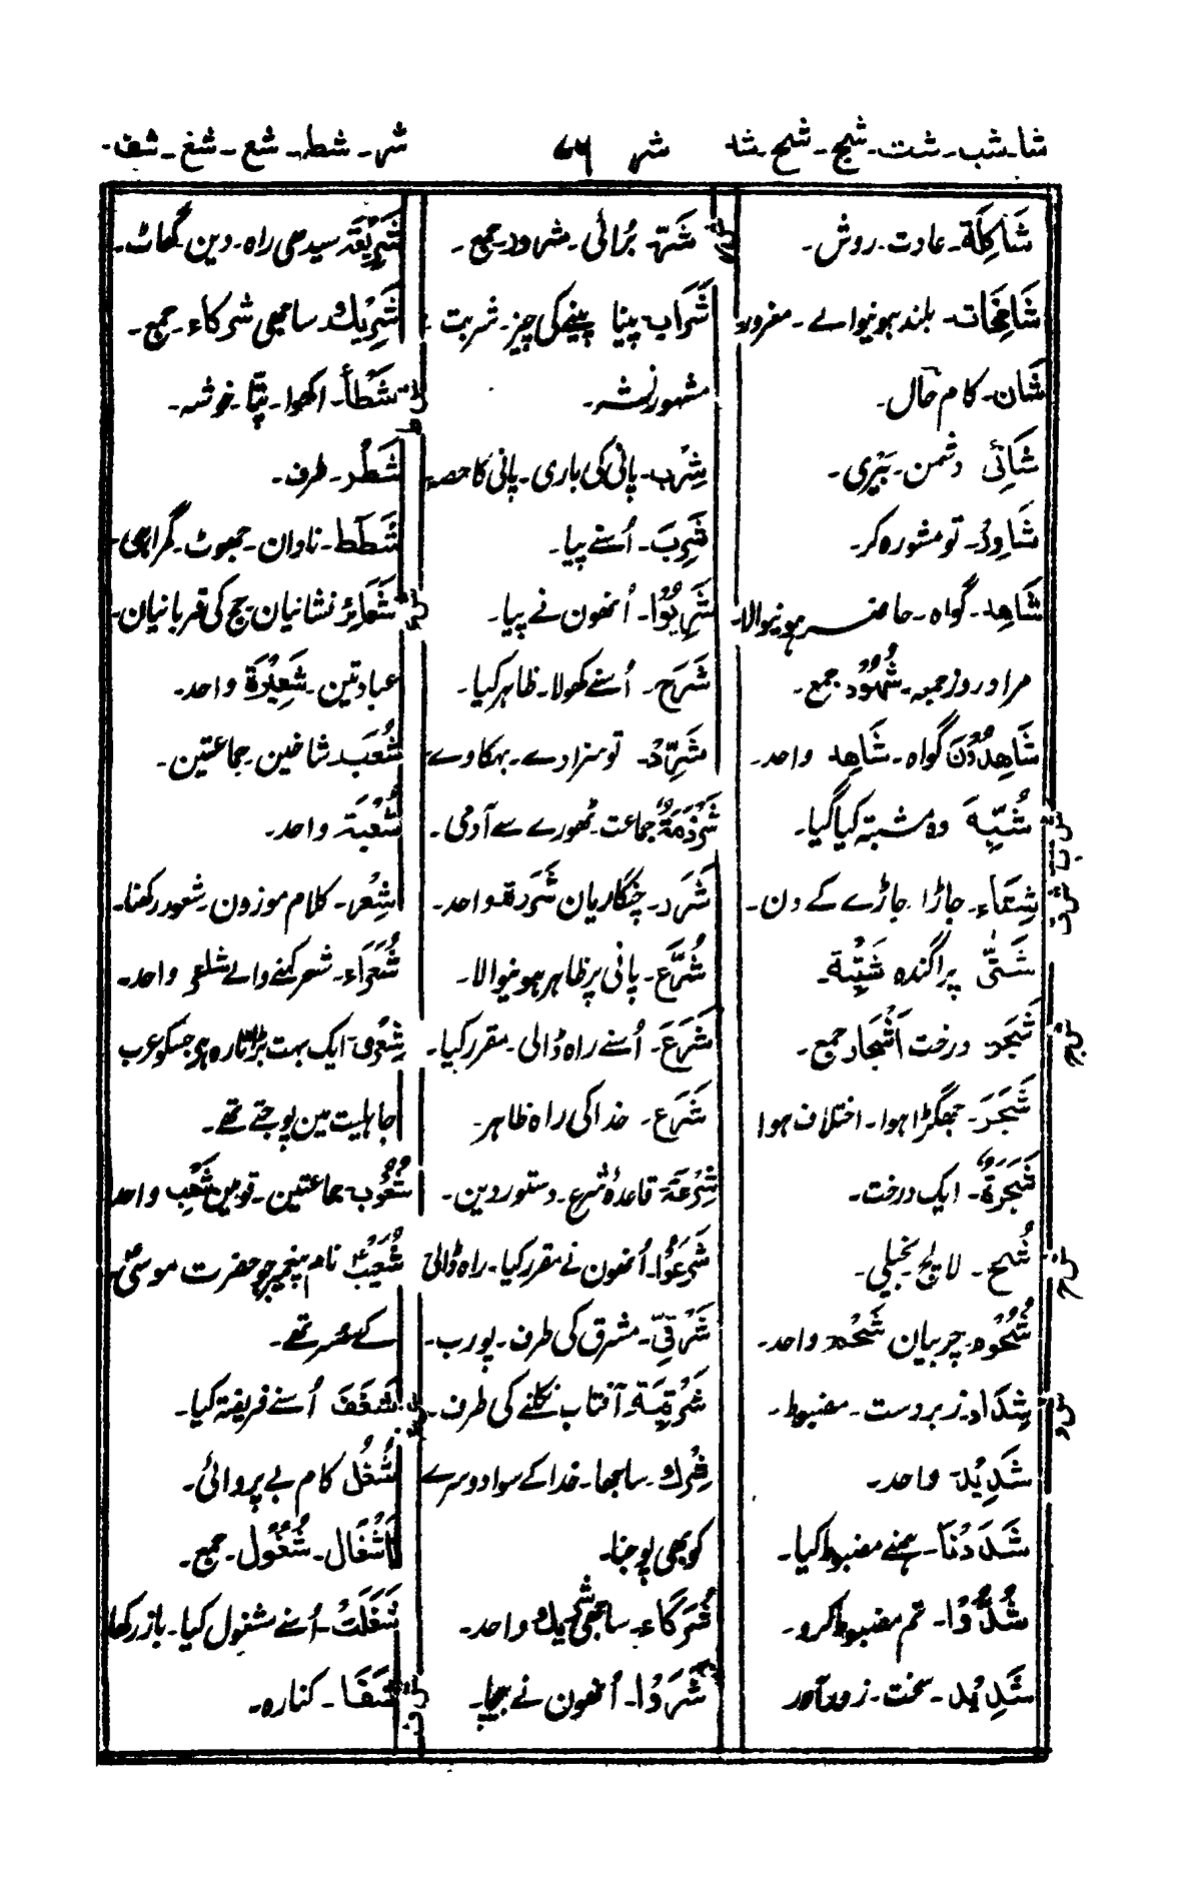 شا۔شب۔شت۔شج۔شح۔شد
شر
۷۶
شر۔شط۔شع۔شغ۔شف۔
شَاکِلَة۔عادت۔روش۔
شَامِخَات۔بلند ہونیوالے۔مغرور۔
شَان۔کام حال۔
شَانِئ دشمن۔بَیری۔
شَاوِرْ۔تو مشورہ کر۔
شَاهِد۔گواہ۔حاضر ہونیوالا۔
مراد روز جمعہ۔شُهُوْد جمع۔
شَاهِدُوْنَ گواہ۔شَاهِد واحد۔
شُبِّهَ وہ مشتبہ کیا گیا۔
شِتَاء۔جاڑا۔جاڑے کے دن۔
شَتّٰی پراگندہ شَتِیْة۔
شَجَر درخت اَشْجَار جمع۔
شَجَرَ۔جھگڑا ہوا۔اختلاف ہوا
شَجَرَةٌ۔ایک درخت۔
شُح۔لالچ بخیلی۔
شُحُوْم۔چربیان شَحْم واحد۔
شِدَاد۔زبردست۔مضبوط۔
شَدِیْد واحد۔
شَدَدْنَا۔ہمنے مضبوط کیا۔
شُدُّوْا۔تم مضبوط کرو۔
شَدِیْد۔سخت۔زورآور
شَرّ بُرائی۔شرور۔جمع۔
شَرَاب۔پینا پینے کی چیز۔شربت۔
مشہور نشہ۔
شِرْب۔پانی کی باری۔پانی کا حصہ۔
شَرِبَ۔اُسنے پیا۔
شَرِبُوْا۔اُنھون نے پیا۔
شَرَحَ۔اُسنے کھولا۔ظاہر کیا۔
شَرِّدْ۔تو سزا دے۔بہکا دے۔
شِرْذِمَةٌ جماعت۔تھورے سے آدمی۔
شَرَر۔چنگاریان شَرَرَة واحد۔
شُرَّع۔پانی پر ظاہر ہونیوالا۔
شَرَعَ۔اُسنے راہ ڈالی۔مقرر کیا۔
شَرَع۔خدا کی راہ ظاہر۔
شِرْعَة قاعدۂ شرع۔دستور دین۔
شَرَعُوْا۔اُنھون نے مقرر کیا۔راہ ڈالی
شَرْقِیّ۔مشرق کی طرف۔پورب۔
شَرْقِیَّة۔آفتاب نکلنے کی طرف۔
شِرْك۔ساجھا۔خدا کے سوا دوسرے
کو بھی پوجنا۔
شُرَکَاء۔ساجھی شریك واحد۔
شَرَوْا۔اُنھون نے بیچا۔
شَرِیْعَة سیدھی راہ۔دین۔گھاٹ۔
شَرِیْك۔ساجھی شرکاء۔جمع۔
شَطْأ۔اکھوا۔پتّا۔خوشہ۔
شَطْر۔طرف۔
شَطَط۔نادان۔جھوٹ۔گمراہی۔
شَعَائِر نشانیان۔حج کی قربانیان۔
عبادتین۔شَعِیْرَة واحد۔
شُعَب۔شاخین۔جماعتین۔
شُعْبَة۔واحد۔
شِعْر۔کلام موزون۔شعور رکھنا۔
شُعَرَاء۔شعر کہنے والے شاعر واحد۔
شِعْرٰی۔ایک بہت بڑا تارہ ہی جسکو عرب
جاہلیت مین پوجتے تھے۔
شُعُوْب۔جماعتین۔قومین شَعْب واحد
شُعَیْبٌ نام پیغمبر جو حضرت موسیٰ
کے خسر تھے۔
شَغَفَ اُسنے فریفتہ کیا۔
شُغُل کام بے پروائی۔
اَشْغَال۔شُغُوْل۔جمع۔
شَغَلَتْ۔اُسنے مشغول کیا۔باز رکھا
شَفَا۔کنارہ۔